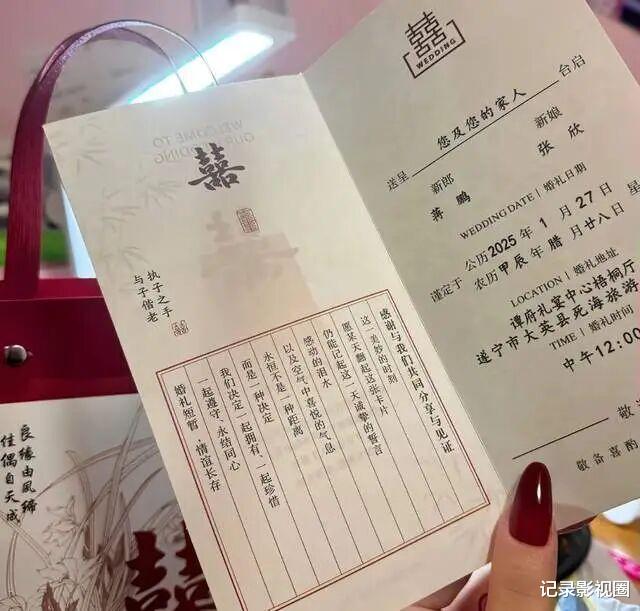 囍
WEDDING
送呈 您及您的家人 台启
新郎 新娘
蒋鹏 张欣
WEDDING DATE | 婚礼日期
谨定于
公历2025年1月27日 星
农历甲辰年腊月廿八日
LOCATION | 婚礼地址
谭府礼宴中心梧桐厅
遂宁市大英县死海旅游
TIME | 婚礼时间
中午12:00
敬备喜酌
WELCOME TO
OUR WEDDING
囍
执子之手
与子偕老
感谢与我们共同分享与见证
这一美妙的时刻
愿某天翻起这张卡片
仍能记起这一天诚挚的誓言
感动的泪水
以及空气中喜悦的气息
永恒不是一种距离
而是一种决定
我们决定一起拥有、一起珍惜
一起遵守、永结同心
婚礼短暂,情谊长存
良缘由夙缔
佳偶自天成
囍
记录影视圈